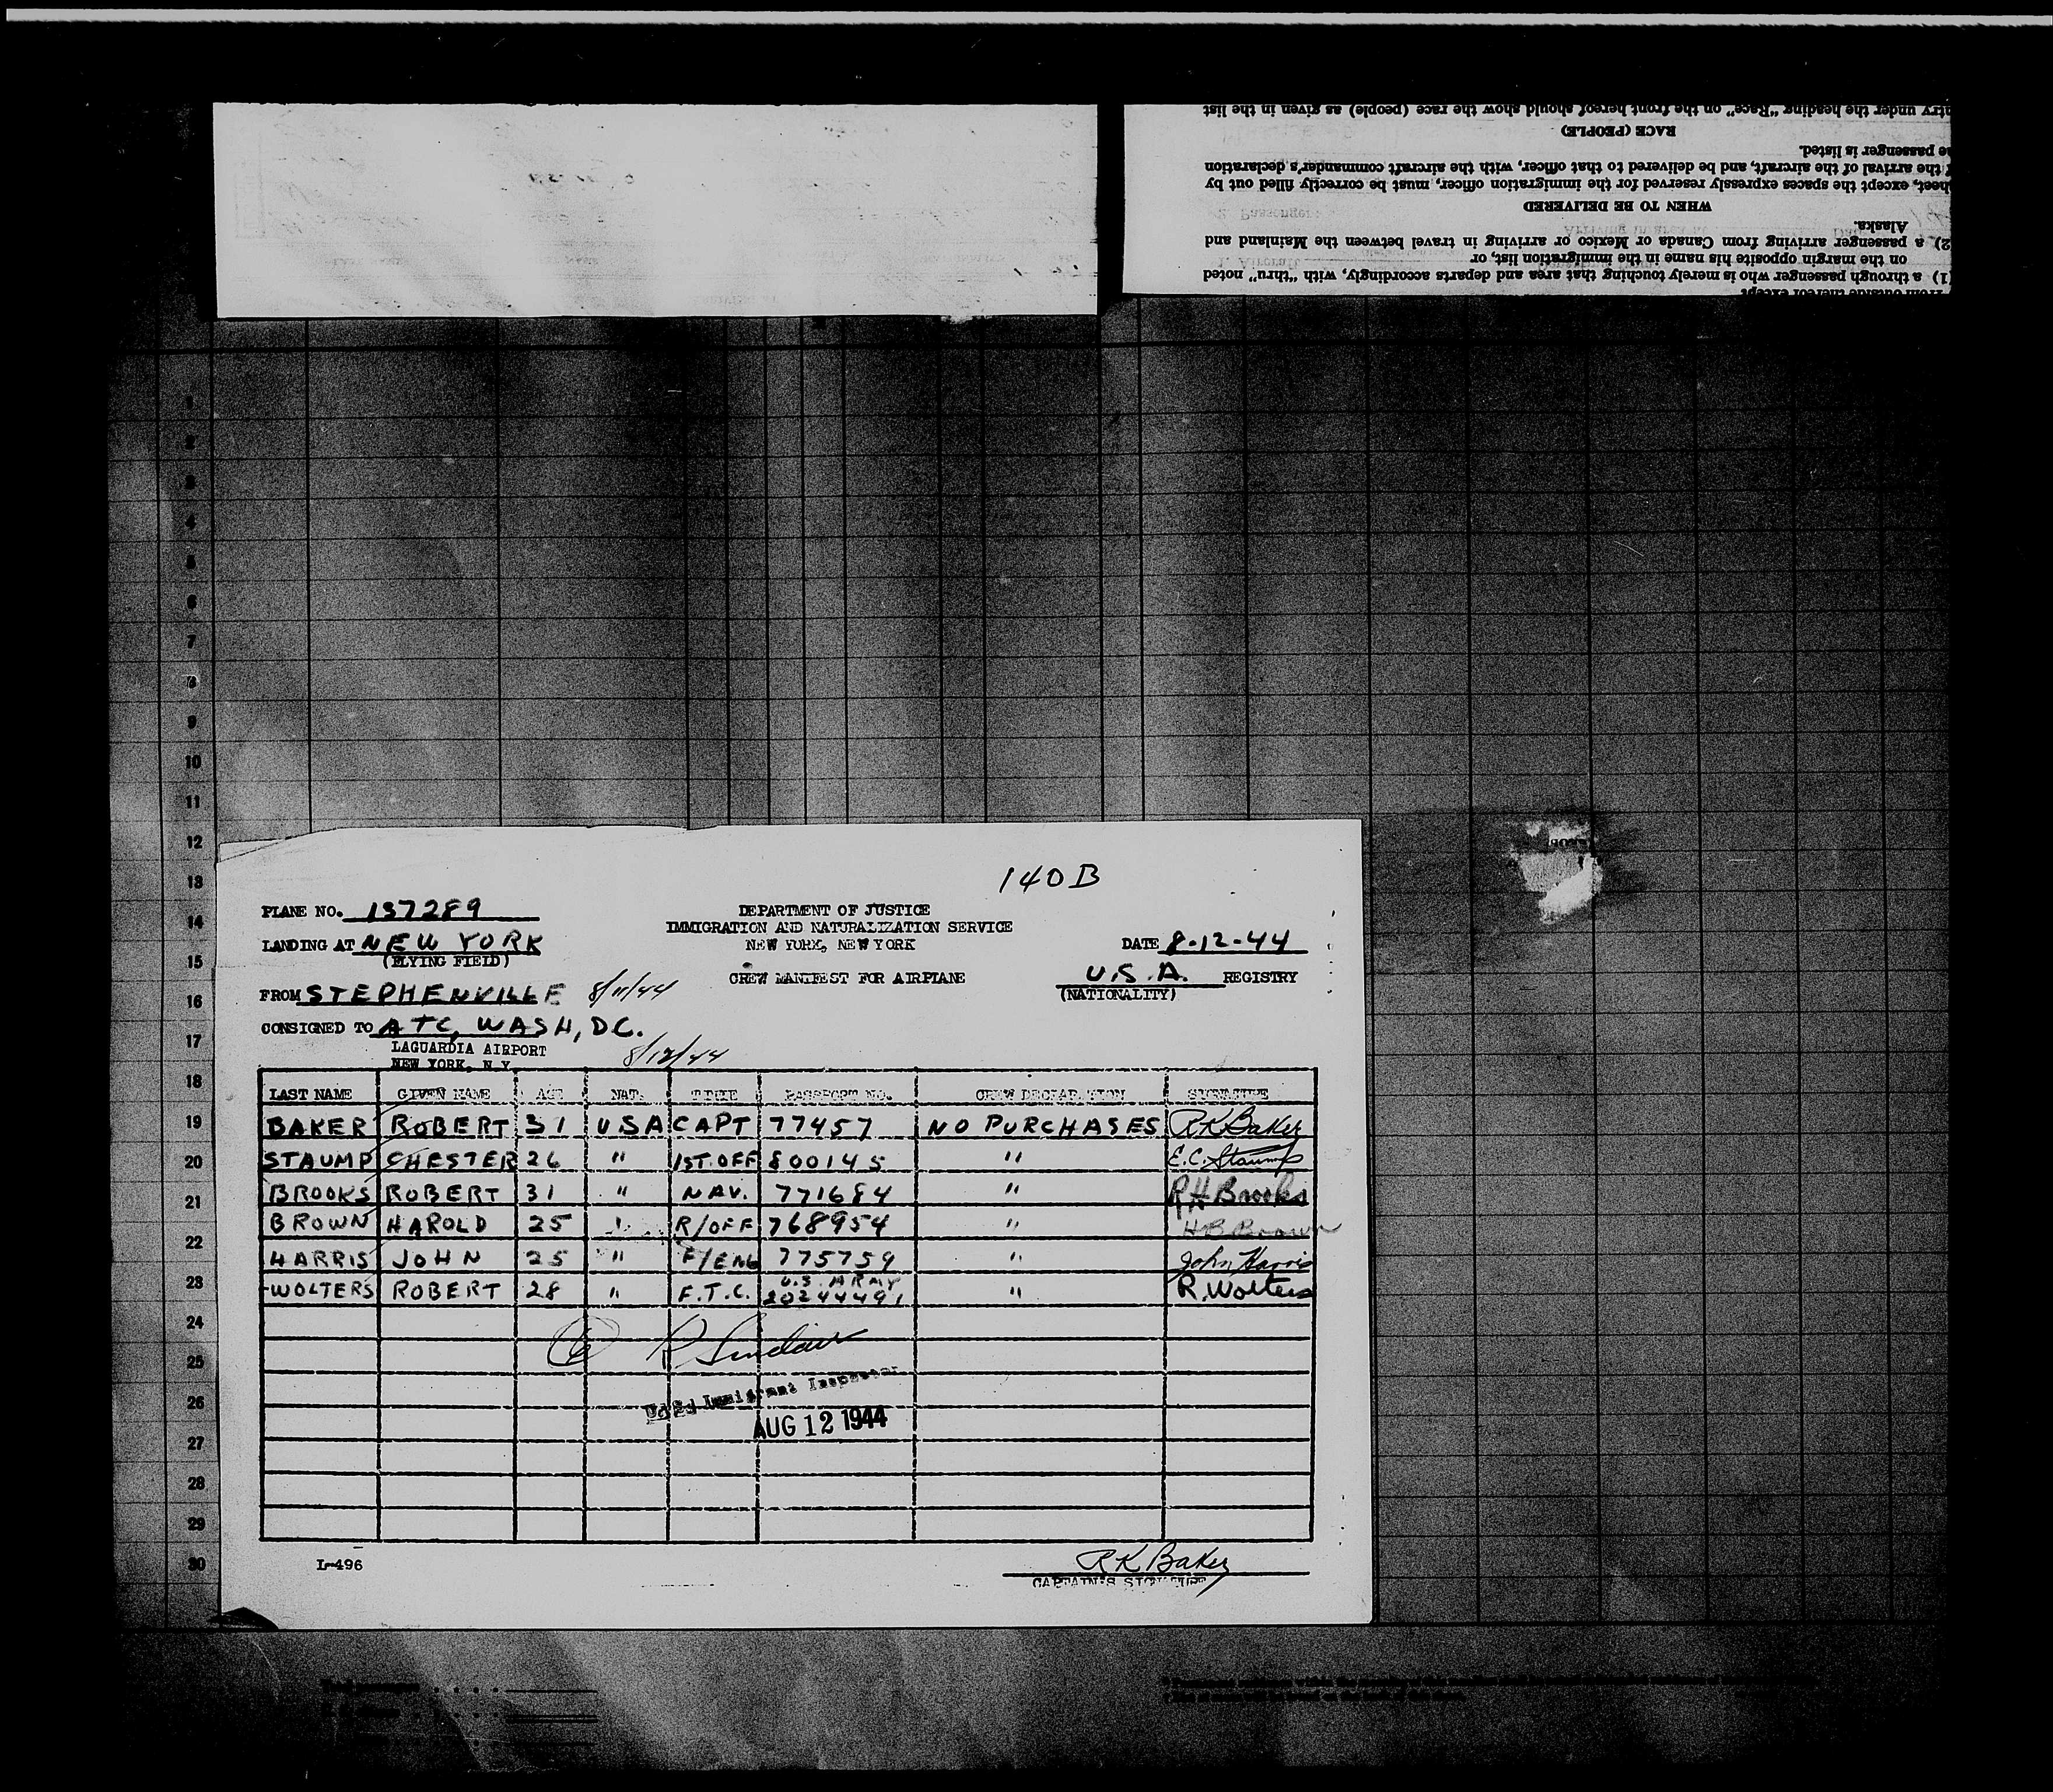 try under the heading "Race" on the front hereof should show the race (people) as given in the list
RACE (PEOPLE)
passenger is listed.
the arrival of the aircraft, and be delivered to that officer, with the aircraft commander's declaration
sheet, except the spaces expressly reserved for the immigration officer, must be correctly filled out by
WHEN TO BE DELIVERED
Alaska.
2) a passenger arriving from Canada or Mexico or arriving in travel between the Mainland and
on the margin opposite his name in the immigration list, or
(1) a through passenger who is merely touching that area and departs accordingly, with "thru" noted
from outside thereof except
1
2
3
4
5
6
7
8
9
10
11
12
13
14
15
16
17
18
19
20
21
22
23
24
25
26
27
28
29
30
140 B
PLANE NO. 137289
DEPARTMENT OF JUSTICE
IMMIGRATION AND NATURALIZATION SERVICE
NEW YORK, NEW YORK
LANDING AT NEW YORK
(FLYING FIELD)
DATE 8-12-44
CREW MANIFEST FOR AIRPLANE
U.S.A. REGISTRY
(NATIONALITY)
FROM STEPHENVILLE 8/11/44
CONSIGNED TO ATC, WASH, D.C.
LAGUARDIA AIRPORT
NEW YORK, N.Y. 8/12/44
LAST NAME GIVEN NAME AGE NAT. TITLE PASSPORT NO. CREW DECLARATION SIGNATURE
BAKER ROBERT 31 USA CAPT 77457 NO PURCHASES RK Baker
STAUMP CHESTER 26 " 1ST. OFF 800145 " E.C. Staump
BROOKS ROBERT 31 " NAV. 771684 " RH Brooks
BROWN HAROLD 25 " R/OFF 768954 " H B Brown
HARRIS JOHN 25 " F/ENG 775759 " John Harris
WOLTERS ROBERT 28 " F.T.C. U.S. ARMY 20244491 " R. Wolters
6 R Sinclair
U.S. Immigrant Inspector
AUG 12 1944
L-496
RK Baker
CAPTAIN'S SIGNATURE